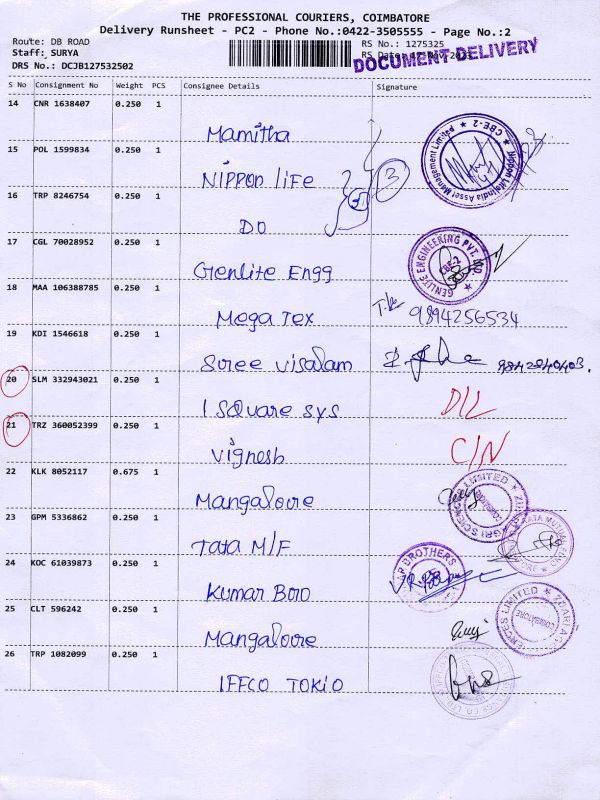 THE PROFESSIONAL COURIERS, COIMBATORE
Delivery Runsheet - PC2 - Phone No.:0422-3505555 - Page No.:2
Route: DB ROAD
RS No.: 1275325
Staff: SURYA
RS Date:
DOCUMENT DELIVERY
DRS No.: DCJB127532502
S No Consignment No Weight PCS Consignee Details Signature
14 CNR 1638407 0.250 1 Mamitha
15 POL 1599834 0.250 1 NIPPON LIFE 3
16 TRP 8246754 0.250 1 DO
17 CGL 70028952 0.250 1 Genlite Engg
18 MAA 106388785 0.250 1 Mega Tex 9894256534
19 KDI 1546618 0.250 1 Sree visalam
20 SLM 332943021 0.250 1 I square sys D/L
21 TRZ 360052399 0.250 1 Vignesh C/N
22 KLK 8052117 0.675 1 Mangalore
23 GPM 5336862 0.250 1 Tata M/F
24 KOC 61039873 0.250 1 Kumar Bro
25 CLT 596242 0.250 1 Mangalore
26 TRP 1082099 0.250 1 IFFCO TOKIO
Nippon Life India Asset Management Limited
CBE-2
GENLITE ENGINEERING PVT. LTD
CBE-2
BROTHERS
COIMBATORE